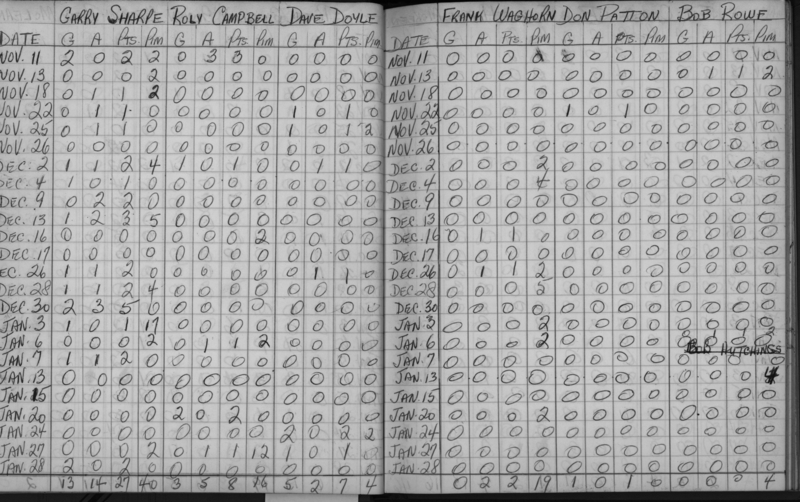 GARRY SHARPE ROLY CAMPBELL DAVE DOYLE
DATE G A Pts. Pim G A Pts. Pim G A Pts. Pim
NOV. 11 2 0 2 2 0 3 3 0 0 0 0 0
NOV. 13 0 0 0 2 0 0 0 0 0 0 0 0
NOV. 18 0 1 1 2 0 0 0 0 0 0 0 0
NOV. 22 0 1 1 0 0 0 0 0 1 0 1 0
NOV. 25 0 1 1 0 0 0 0 0 1 0 1 2
NOV. 26 0 0 0 0 0 0 0 0 0 0 0 0
DEC. 2 1 1 2 4 1 0 1 0 0 1 1 0
DEC. 4 1 0 1 0 0 0 0 0 0 0 0 0
DEC. 9 0 2 2 0 0 0 0 0 0 0 0 0
DEC. 13 1 2 3 5 0 0 0 0 0 0 0 0
DEC. 16 0 0 0 0 0 0 0 2 0 0 0 0
DEC. 17 0 0 0 0 0 0 0 0 0 0 0 0
EC. 26 1 1 2 0 0 0 0 0 0 1 1 0
DEC. 28 1 1 2 4 0 0 0 0 0 0 0 0
DEC. 30 2 3 5 0 0 0 0 0 0 0 0 0
JAN. 3 1 0 1 17 0 0 0 0 0 0 0 0
JAN. 6 0 0 0 2 0 1 1 2 0 0 0 0
JAN. 7 1 1 2 0 0 0 0 0 0 0 0 0
JAN. 13 0 0 0 0 0 0 0 0 0 0 0 0
JAN. 15 0 0 0 0 0 0 0 0 0 0 0 0
JAN. 20 0 0 0 0 2 0 2 0 0 0 0 0
JAN. 24 0 0 0 0 2 0 2 2
JAN. 27 0 0 0 2 0 1 1 12 1 0 1
JAN. 28 2 0 2 0 0 0 0 0 0 0 0 0
13 14 27 40 3 5 8 16 5 2 7 4
FRANK WAGHORN DON PATTON BOB ROWE
DATE G A Pts. Pim G A Pts. Pim G A Pts. Pim
NOV. 11 0 0 0 0 0 0 0 0 0 0 0
NOV. 13 0 0 0 0 0 0 0 0 0 1 1 2
NOV. 18 0 0 0 0 0 0 0 0 0 0 0 0
NOV. 22 0 0 0 0 1 0 1 0 0 0 0 0
NOV. 25 0 0 0 0 0 0 0 0 0 0 0 0
NOV. 26 0 0 0 0 0 0 0 0 0 0 0 0
DEC. 2 0 0 0 2 0 0 0 0 0 0 0 0
DEC. 4 0 0 0 4 0 0 0 0 0 0 0 0
DEC. 9 0 0 0 0 0 0 0 0 0 0 0 0
DEC. 13 0 0 0 0 0 0 0 0 0 0 0 0
DEC. 16 0 1 1 0 0 0 0 0 0 0 0 0
DEC. 17 0 0 0 0 0 0 0 0 0 0 0 0
DEC. 26 0 1 1 2 0 0 0 0 0 0 0 0
DEC. 28 0 0 0 5 0 0 0 0 0 0 0 0
DEC. 30 0 0 0 0 0 0 0 0 0 0 0 0
JAN. 3 0 0 0 2 0 0 0 0 0 0 0 0
JAN. 6 0 0 0 2 0 0 0 0 1 1
BOB HUTCHINGS
JAN. 7 0 0 0 0 0 0 0 0 0 0 0 0
JAN. 13 0 0 0 0 0 0 0 0 0 0 0 4
JAN. 15 0 0 0 0 0 0 0 0 0 0 0 0
JAN. 20 0 0 0 2 0 0 0 0 0 0 0 0
JAN. 24 0 0 0 0 0 0 0 0 0 0 0 0
JAN. 27 0 0 0 0 0 0 0 0 0 0 0 0
JAN. 28 0 0 0 0 0 0 0 0 0 0 0 0
0 2 2 19 1 0 1 0 0 0 0 4